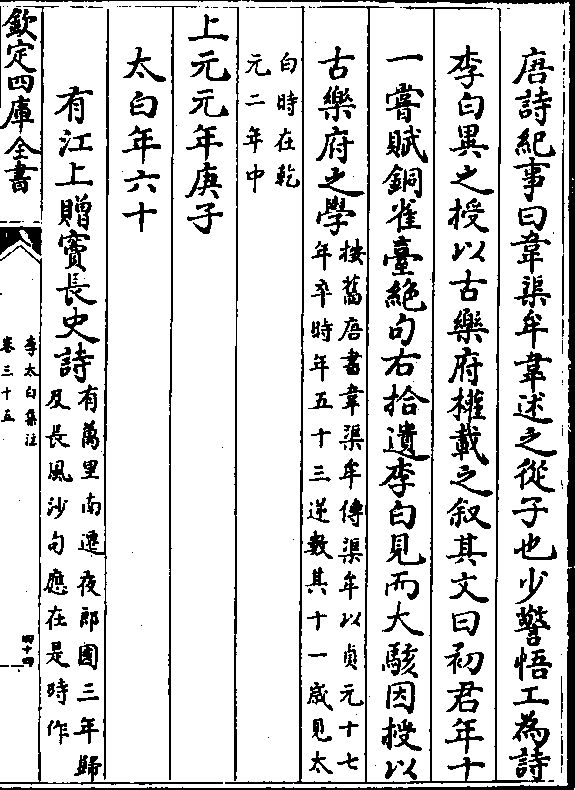 唐詩紀事曰韋渠牟韋述之從子也少警悟工為詩
李白異之授以古樂府權載之叙其文曰初君年十
一嘗賦銅雀臺絶句右拾遺李白見而大駭因授以
古樂府之學
按舊唐書韋渠牟傳渠牟以貞元十七
年卒時年五十三逆數其十一歲見太
白時在乾
元二年中
上元元年庚子
太白年六十
有江上贈竇長史詩
有萬里南遷夜郎國三年歸
及長風沙句應在是時作
欽定四庫全書
李太白集注
卷三十五
四十四